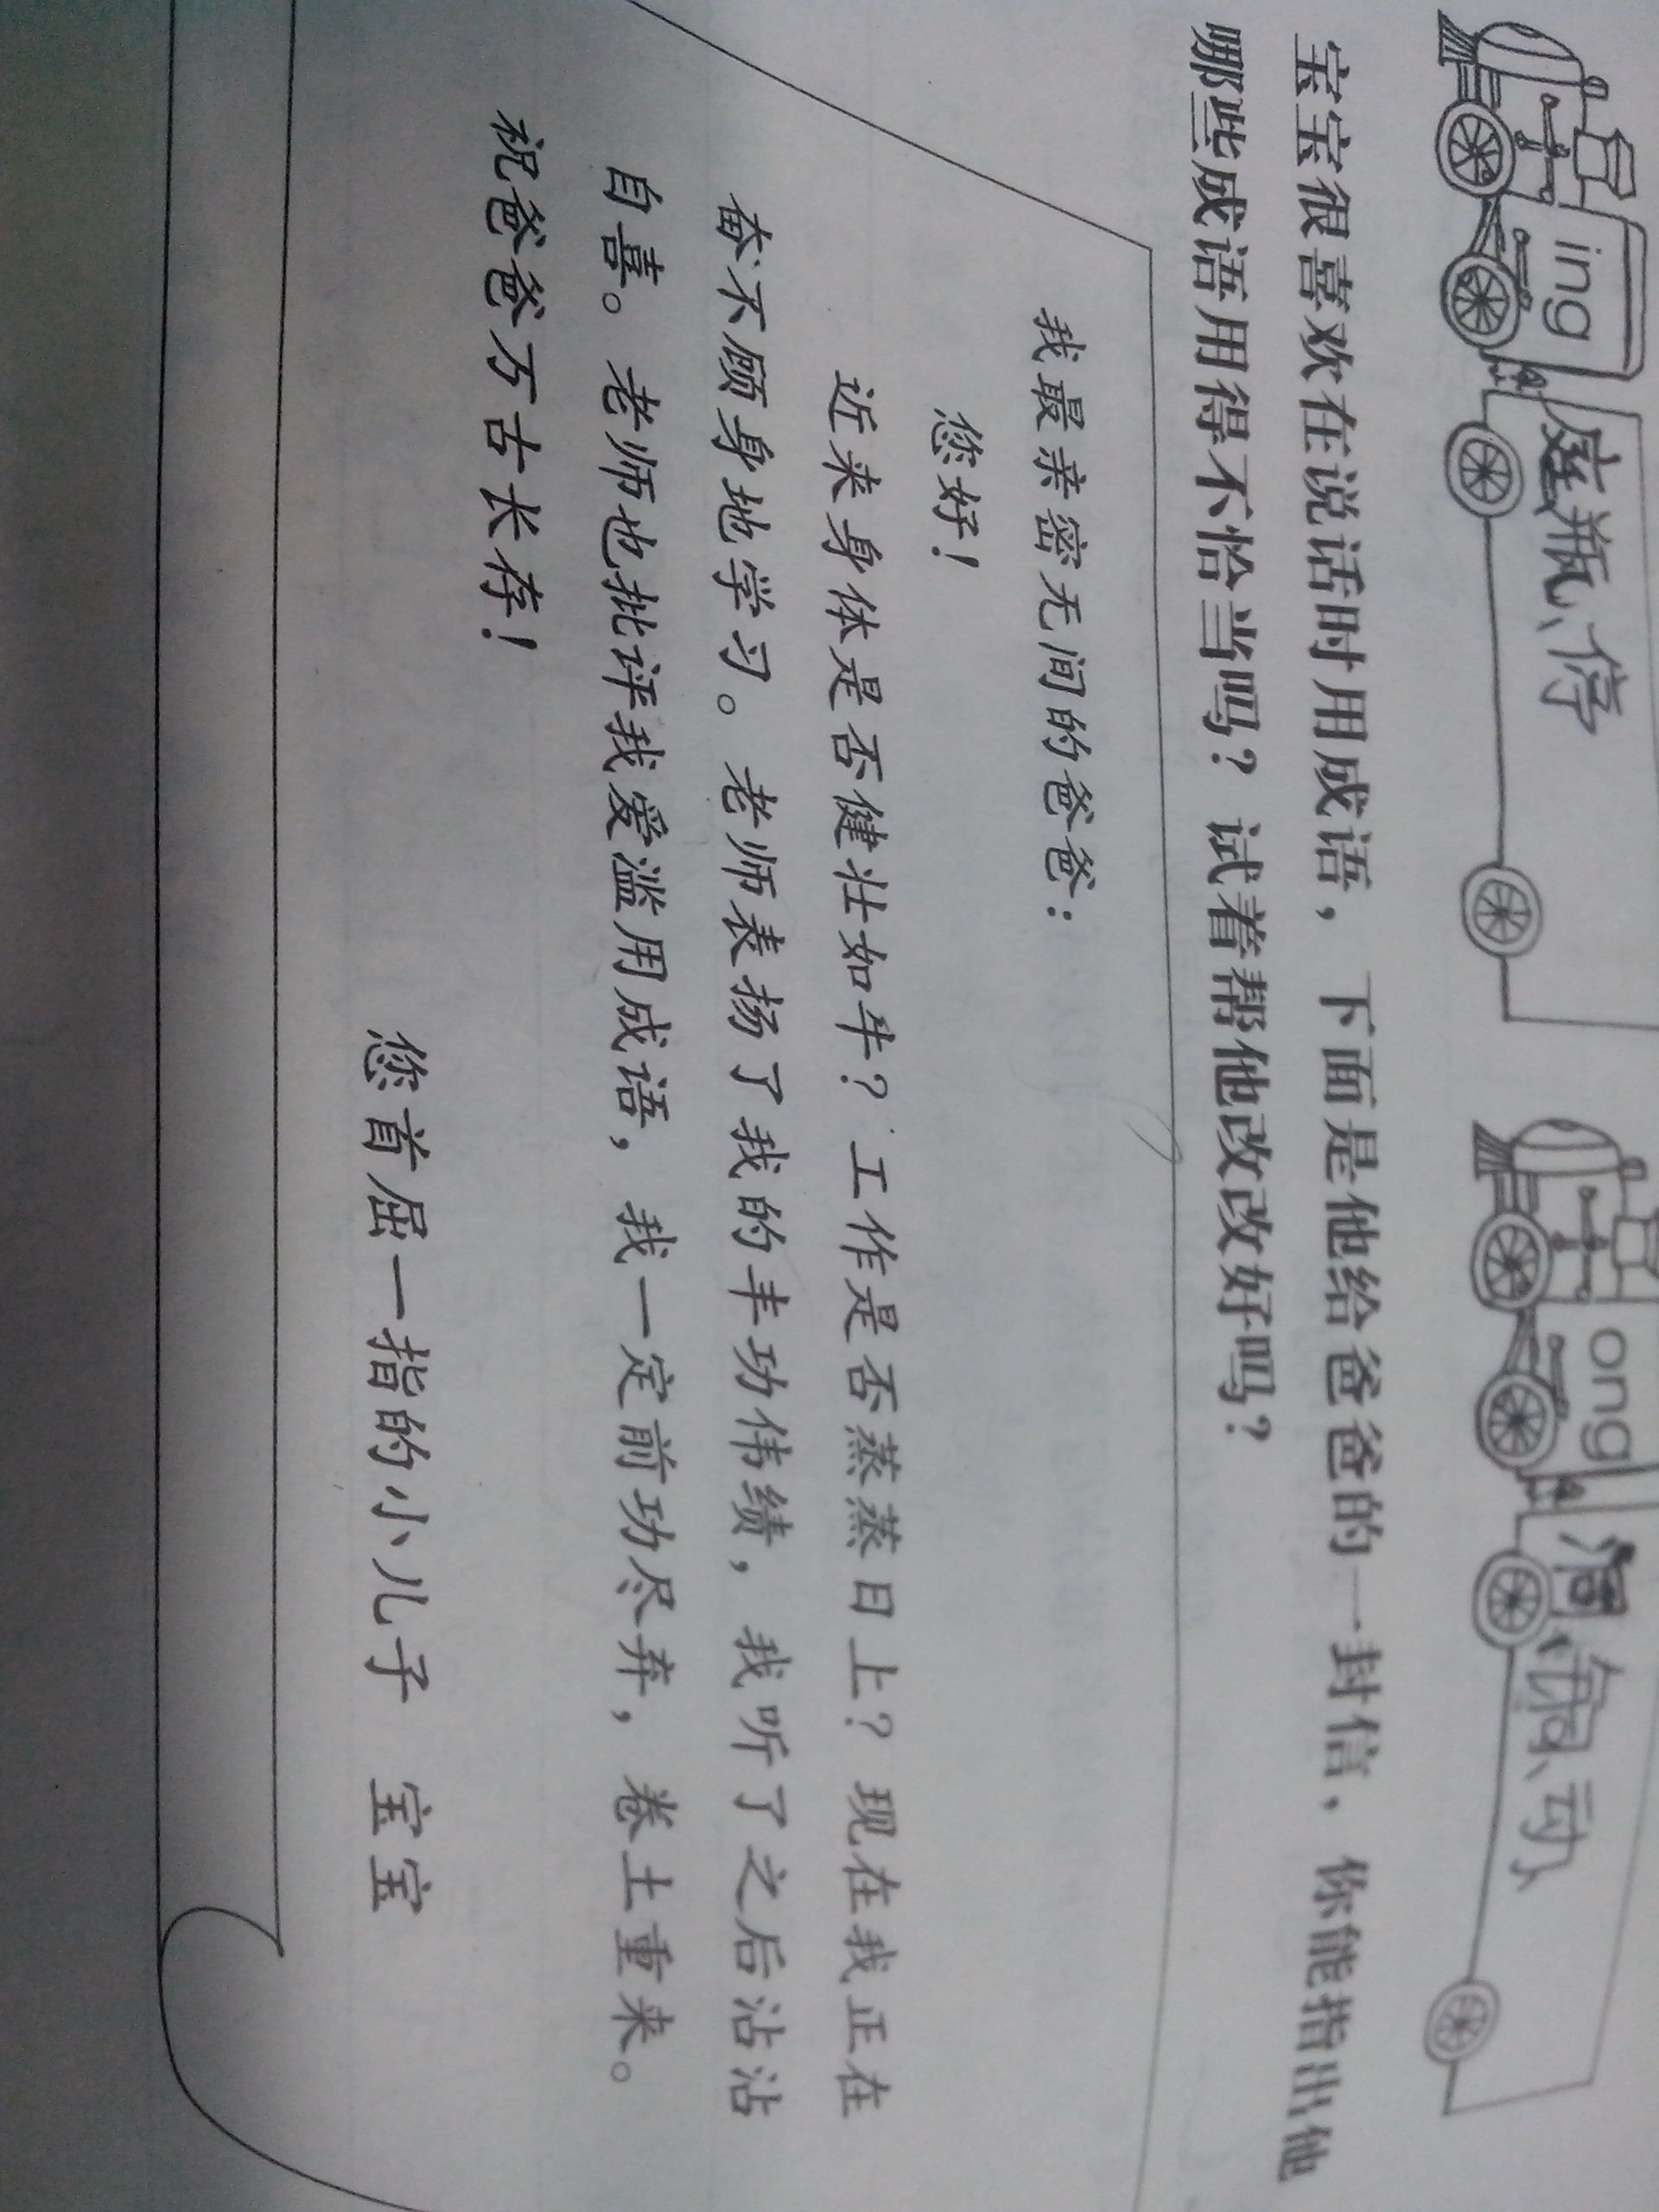 ing 庭、瓶、停
ong 洞、桐、动
宝宝很喜欢在说话时用成语，下面是他给爸爸的一封信，你能指出他
哪些成语用得不恰当吗？试着帮他改改好吗？
我最亲密无间的爸爸：
您好！
近来身体是否健壮如牛？工作是否蒸蒸日上？现在我正在
奋不顾身地学习。老师表扬了我的丰功伟绩，我听了之后沾沾
自喜。老师也批评我爱滥用成语，我一定前功尽弃，卷土重来。
祝爸爸万古长存！
您首屈一指的小儿子 宝宝